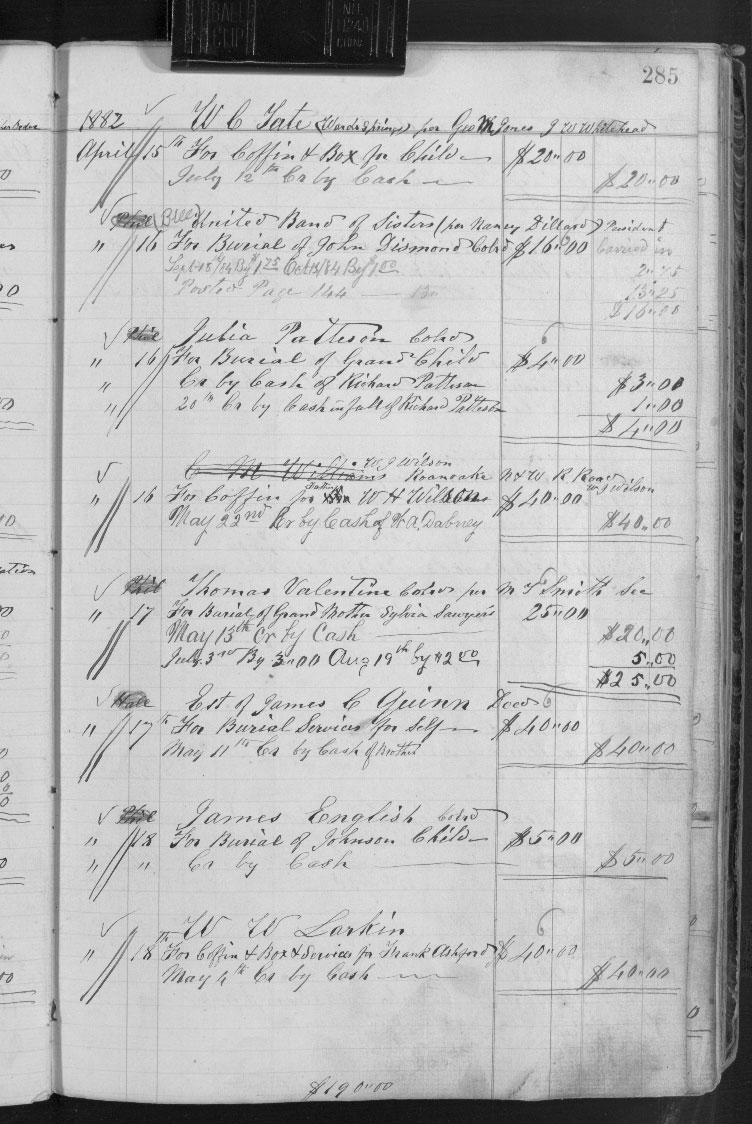 BALL CLIP
285
1882 W C Tate (Wards Springs) per Geo M Jones J W Whitehead
April 15th For Coffin & Box for Child $20"00
July 12th Cr by Cash $20"00
(Bill) United Band of Sisters (per Nancy Dillard) President
" 16 For Burial of John Dismond Cold $16"00 Carried in
Sept 18/84 By $1 75 Oct 13/84 By $1 00 2"75
Posted Page 144 13"25
$16"00
Julia Patteson Colrd 6
" 16 For Burial of Grand Child $4"00
" Cr by Cash of Richard Patteson $3"00
" 20th Cr by Cash in full of Richard Patteson 1"00
$4"00
W J Wilson
C M Williams Roanoake N & W R Road
W J Wilson
" 16 For Coffin for W H Wilson $40"00
May 22nd Cr by Cash of W. A. Dabney $40"00
Thomas Valentine Colrd per M T Smith Sec
" 17 For Burial of Grand Mother Sylvia Sawyers 25"00
May 13th Cr by Cash $20"00
July 3rd By 3"00 Aug 19th by $2 00 5"00
$25"00
Est of James C Guinn Deced 6
" 17th For Burial Services for Self $40"00
May 11th Cr by Cash of Mother $40"00
James English Colrd
" 18 For Burial of Johnson Child $5"00
" " Cr by Cash $5"00
W W Larkin 6
" 18th For Coffin & Box & Services for Frank Ashford $40"00
May 4th Cr by Cash $40"00
$190"00